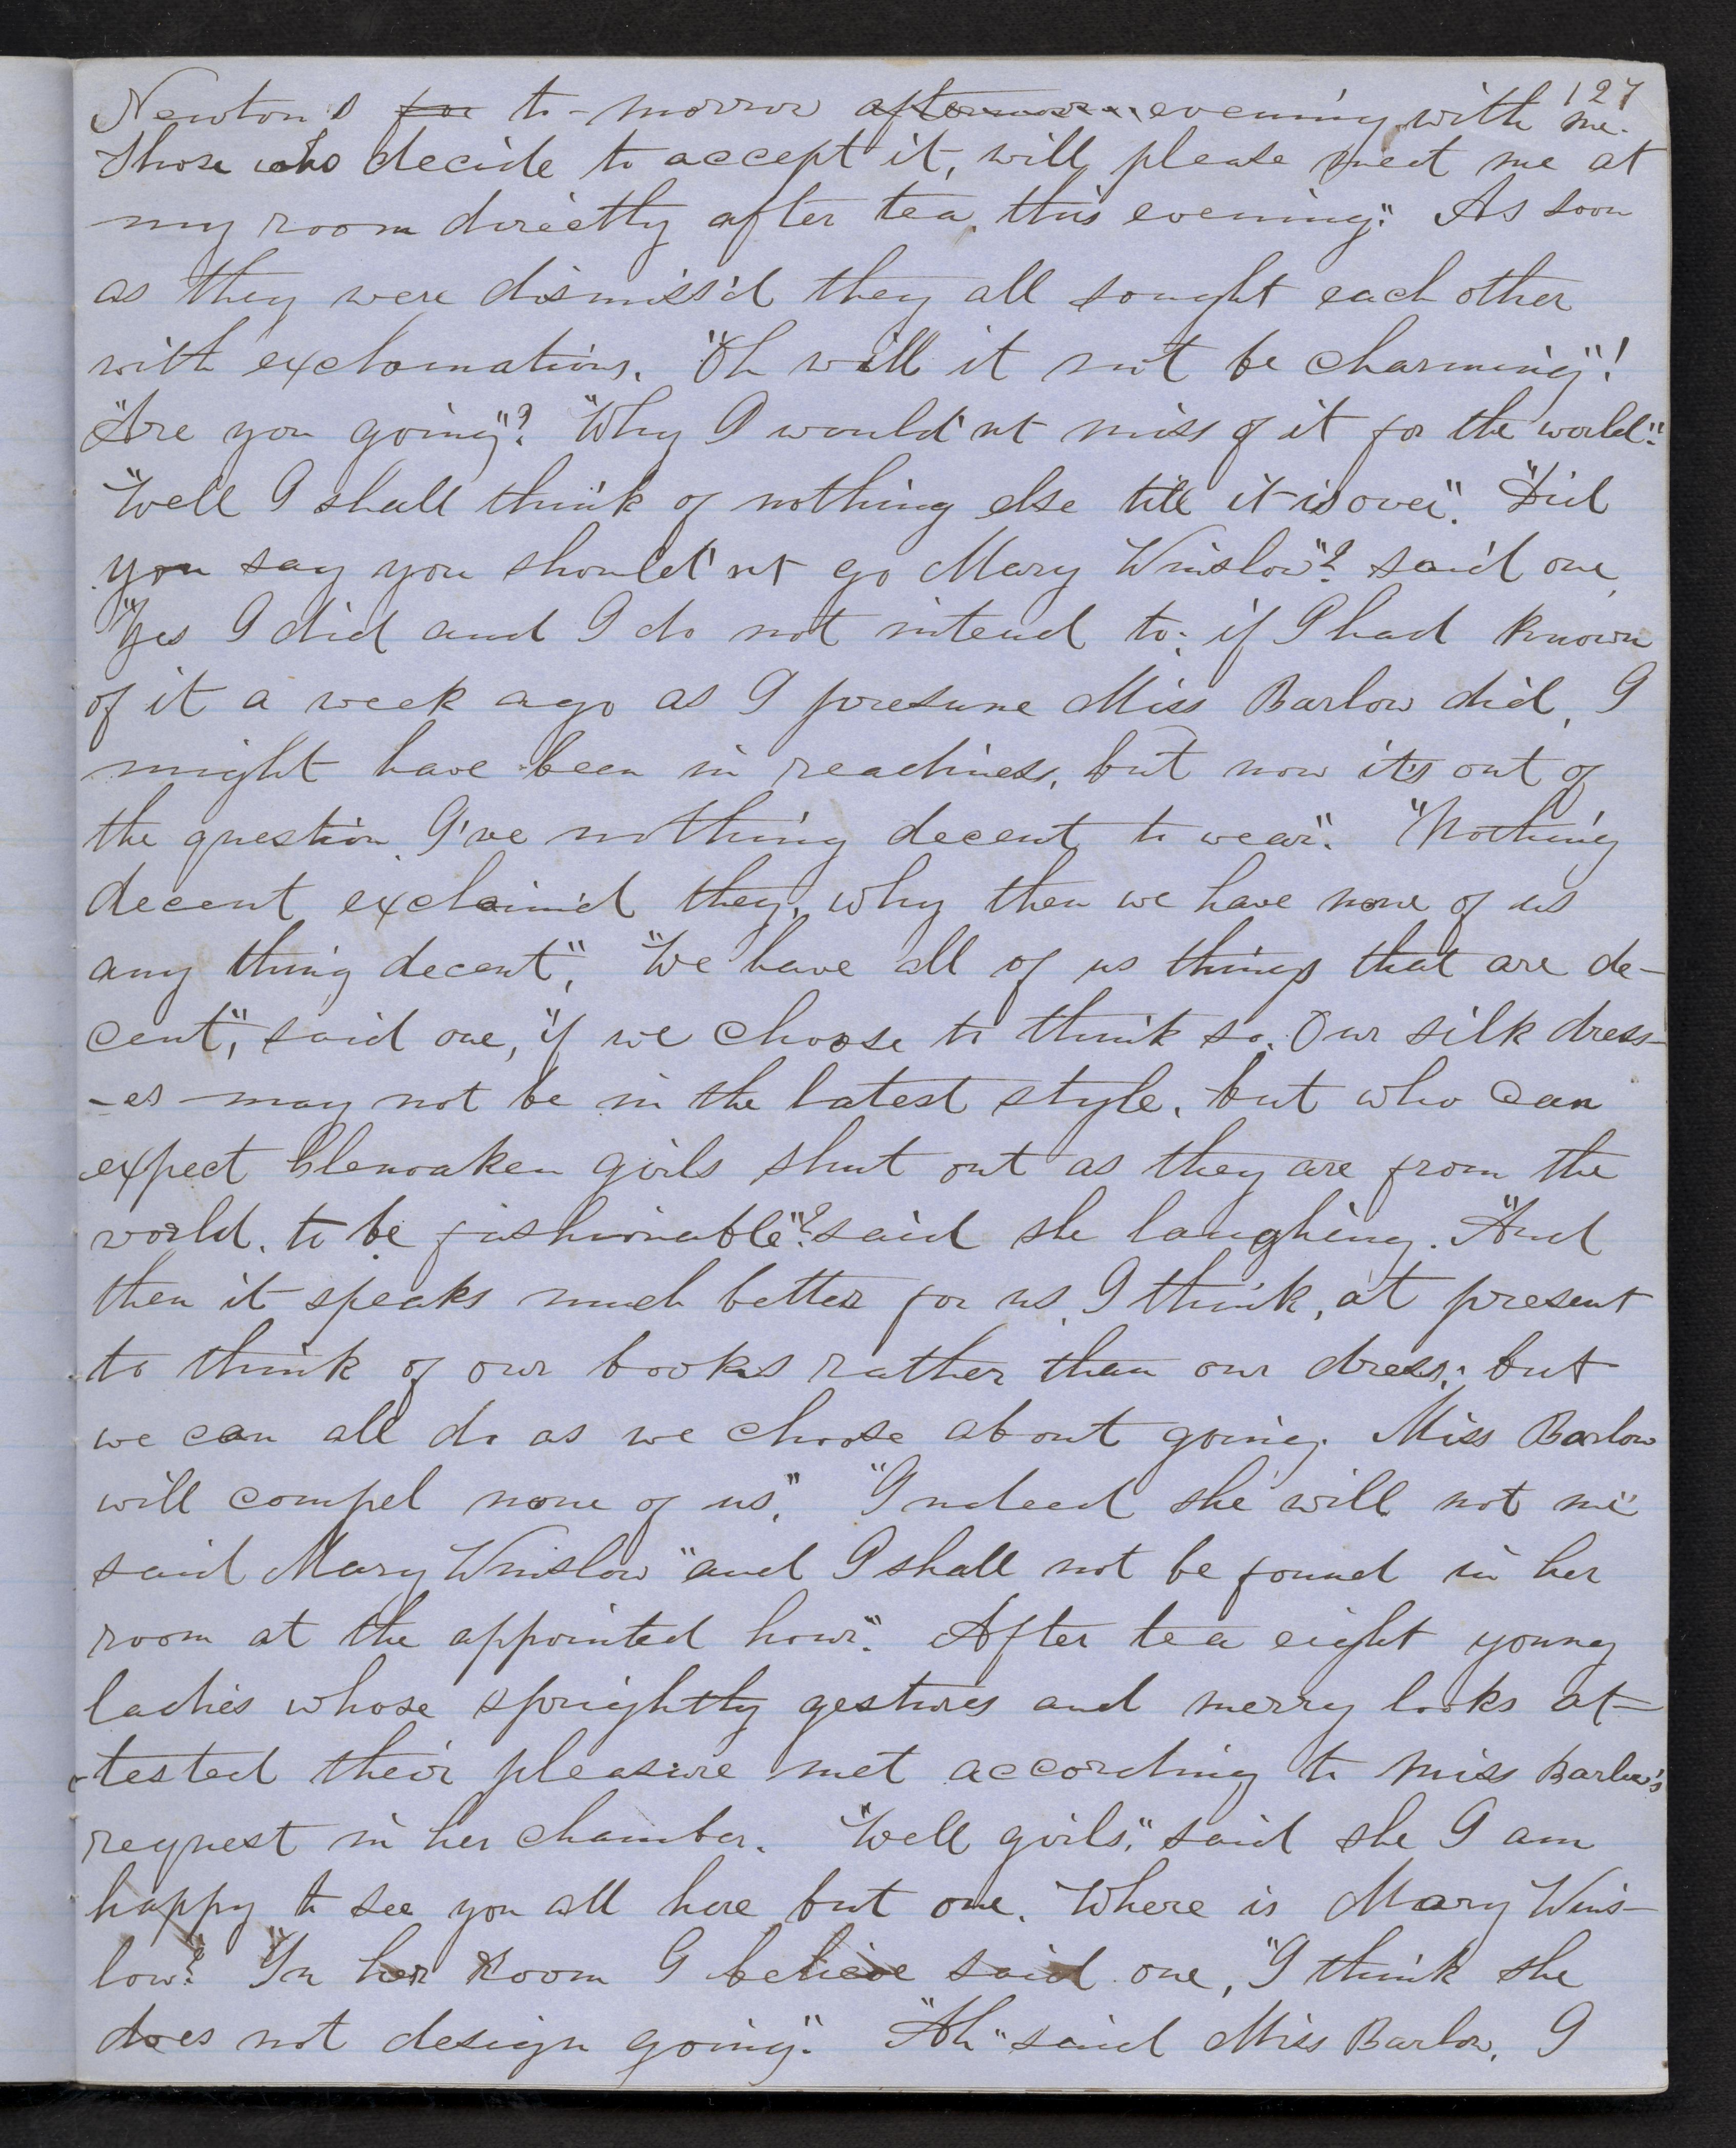 127
Newton's for to-morrow afternoon evening with me.
Those who decide to accept it, will please meet me at
my room directly after tea, this evening." As soon
as they were dismiss'd they all sought each other
with exclamations. "Oh will it not be charming"!
"Are you going"? "Why I would'nt miss of it for the world".
"Well I shall think of nothing else till it is over". "Did
you say you should'nt go Mary Winslow"? said one,
"Yes I did and I do not intend to; if I had known
of it a week ago as I presume Miss Barlow did, I
might have been in readiness, but now it's out of
the question, I've nothing decent to wear". "Nothing
decent exclaim'd they, why then we have none of us
any thing decent", "We have all of us things that are de-
cent", said one, "if we choose to think so. Our silk dress-
-es may not be in the latest style, but who can
expect Glenoaken girls shut out as they are from the
world, to be fashionable"? said she laughing. "And
then it speaks much better for us, I think, at present
to think of our books rather than our dress; but
we can all do as we choose about going. Miss Barlow
will compel none of us". "Indeed she will not me"
said Mary Winslow "and I shall not be found in her
room at the appointed hour". After tea eight young
ladies whose sprightly gestures and merry looks at-
-tested their pleasure met according to Miss Barlow's
request in her chamber. "Well girls," said she I am
happy to see you all here but one. Where is Mary Wins-
low? "In her room I believe said one, "I think she
does not design going". "Ah" said Miss Barlow, I